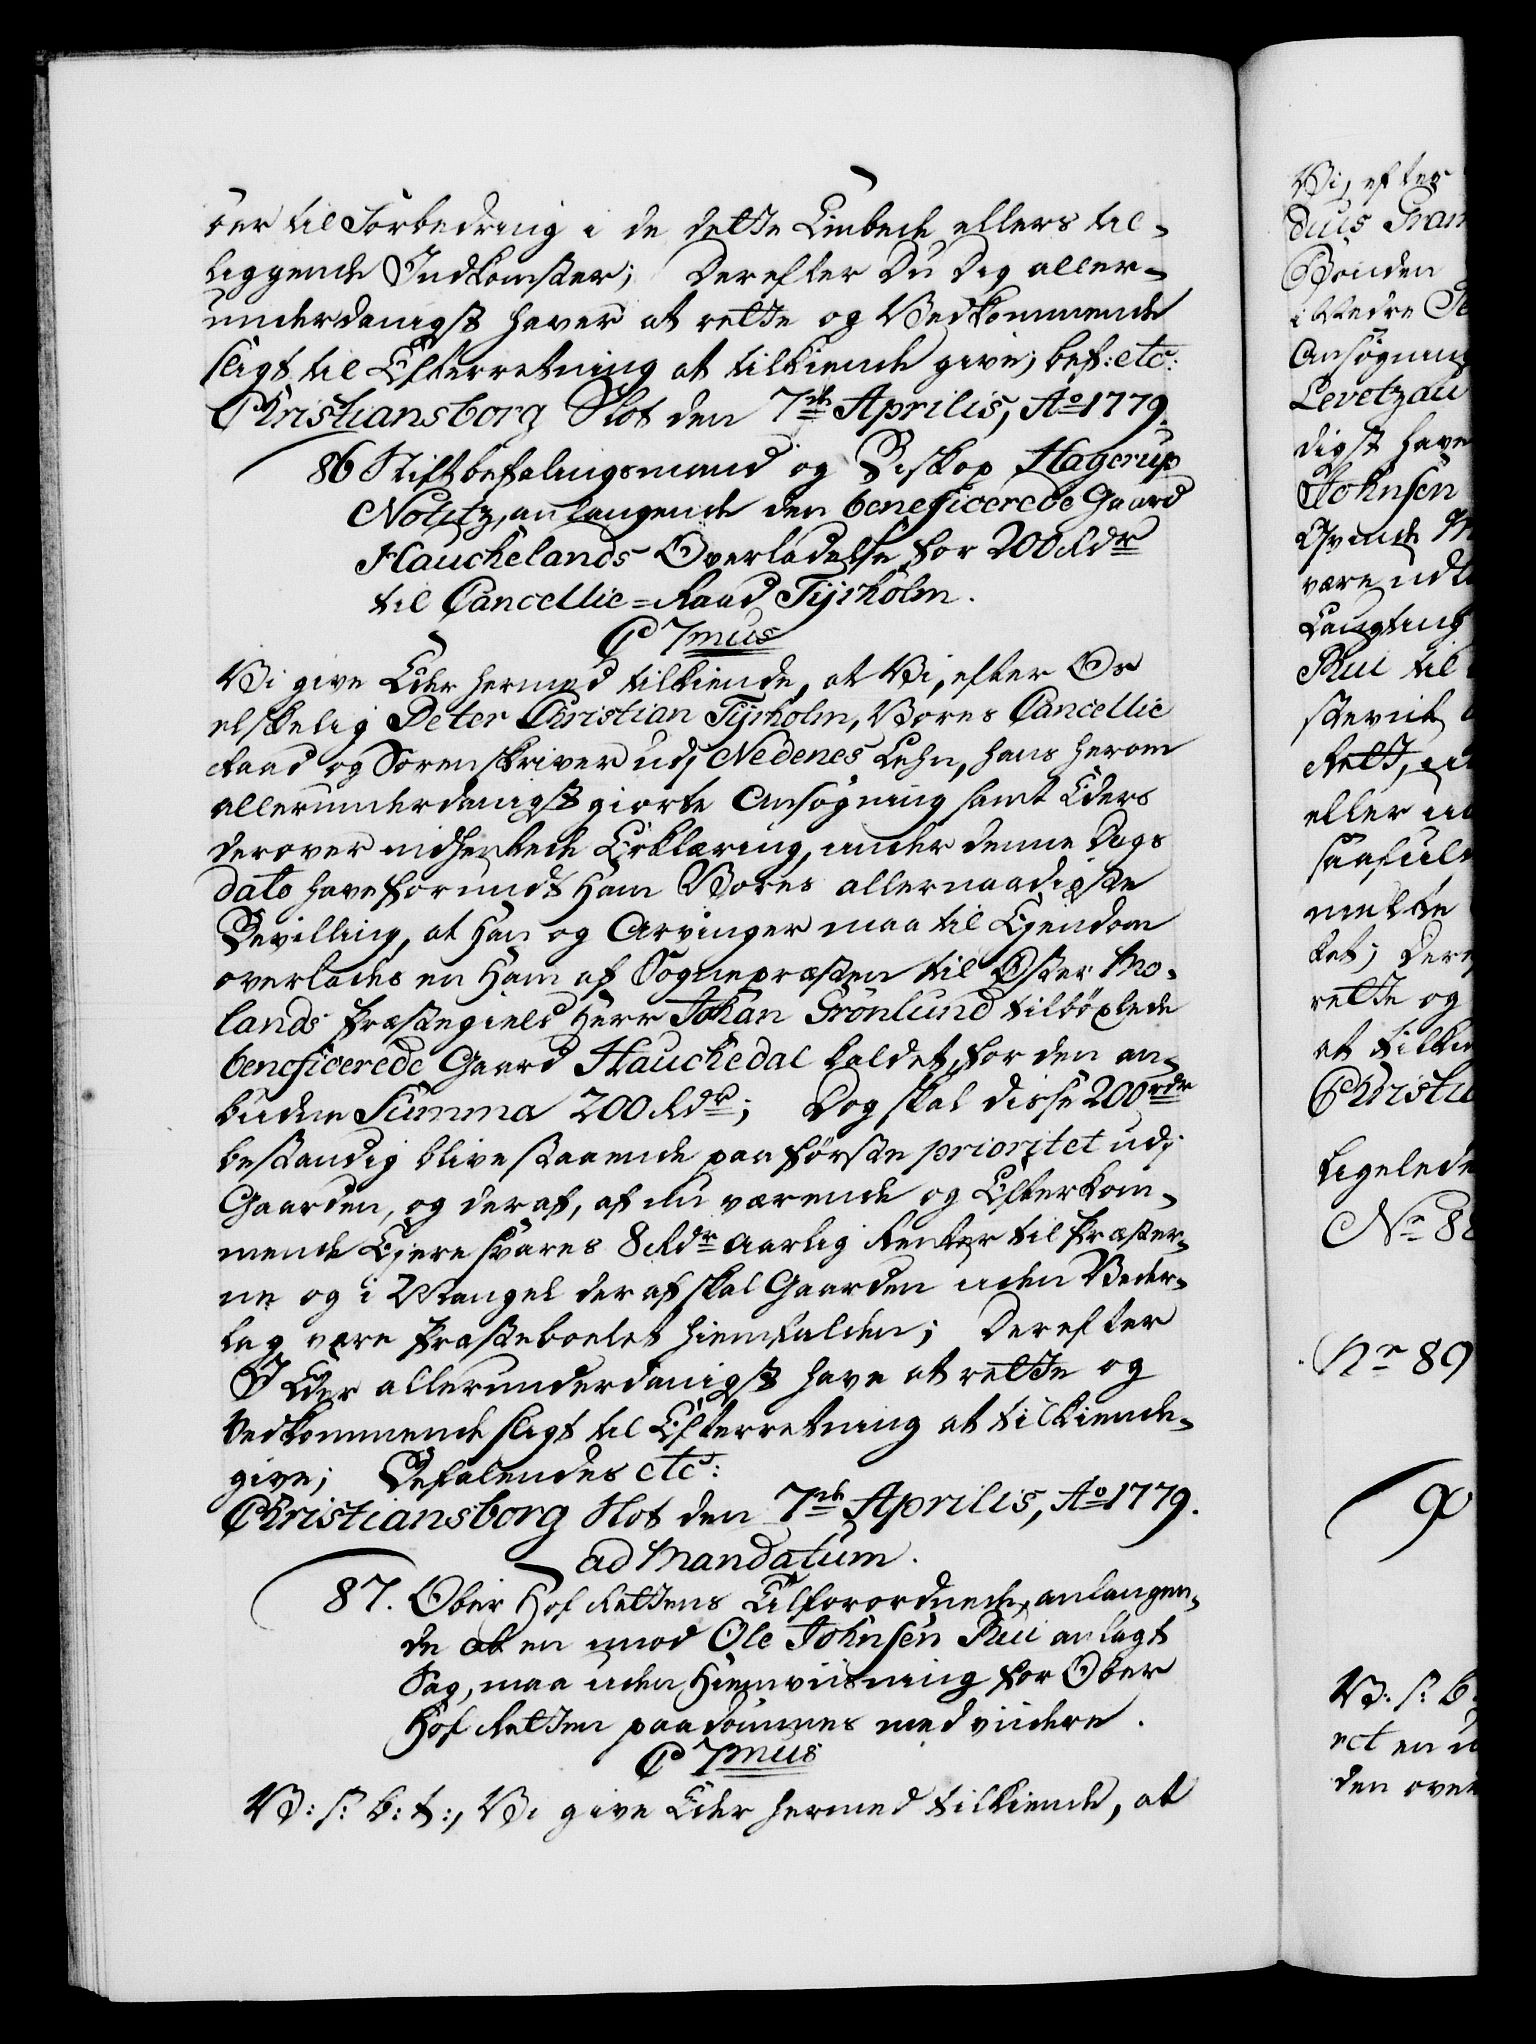 ver til Forbedring i de dette Embede ellers til-
liggende Indkomster; Derefter Du Dig aller-
underdanigst haver at rette og Vedkommende
sligt til Efterretning at tilkiende give; bef: etc:
Christiansborg Slot den 7de Aprilis, Ao 1779.
86 Stiftbefalingsmand og Biskop Hagerup
Notitz, anlangende den beneficerede Gaard
Hauckelands Overladelse for 200 Rdr
til Cancellie=Raad Tyrholm.
C 7mus
Vi give Eder hermed tilkiende, at Vi, efter Os
elskelig Peter Christian Tyrholm, Vores Cancellie
Raad og Sorenskriver udj Nedenes Lehn, hans herom
allerunderdanigst giorte Ansøgning samt Eders
derover indhentede Erklæring, under denne Dags
dato have forundt Ham Vores allernaadigste
Bevilling, at Han og Arvinger maa til Ejendom
overlades en Ham af Sognepræsten til Øster Mo-
lands Præstegield Herr Johan Grönlund tilbøxlede
beneficerede Gaard Hauckedal kaldet, for den an-
budne Summa 200 Rdr; Dog skal disse 200 rdr
bestandig blive staaende paa første prioritet udj
Gaarden, og deraf, af nu værende og Efterkom-
mende Ejere svares 8 Rdr aarlig Renter til Præster-
ne og i Mangel deraf skal Gaarden uden Veder-
lag være Præsteboelet hiemfalden; Derefter
I Eder allerunderdanigst have at rette og
Vedkommende sligt til Efterretning at tilkiende-
give; Befalendes etc:
Christiansborg Slot den 7de Aprilis, Ao 1779.
ad Mandatum.
87. Ober Hof Rettens Tilforordnede, anlangen-
de at en imod Ole Johnsen Ruu anlagt
Sag, maa uden Hiemviisning for Ober
Hof Retten paadømmes med videre.
C 7mus
V: s: b: t:, Vi give Eder hermed tilkiende, at
Vi, efter
Bönden
Ansøgning
Levetzau
digst have
Johnsen
være udt
Ruu til
Rett,
eller
rette og
at tilki
Christia
Ligelede
No 88
No 89
90
V: s: b:
ect en
den over